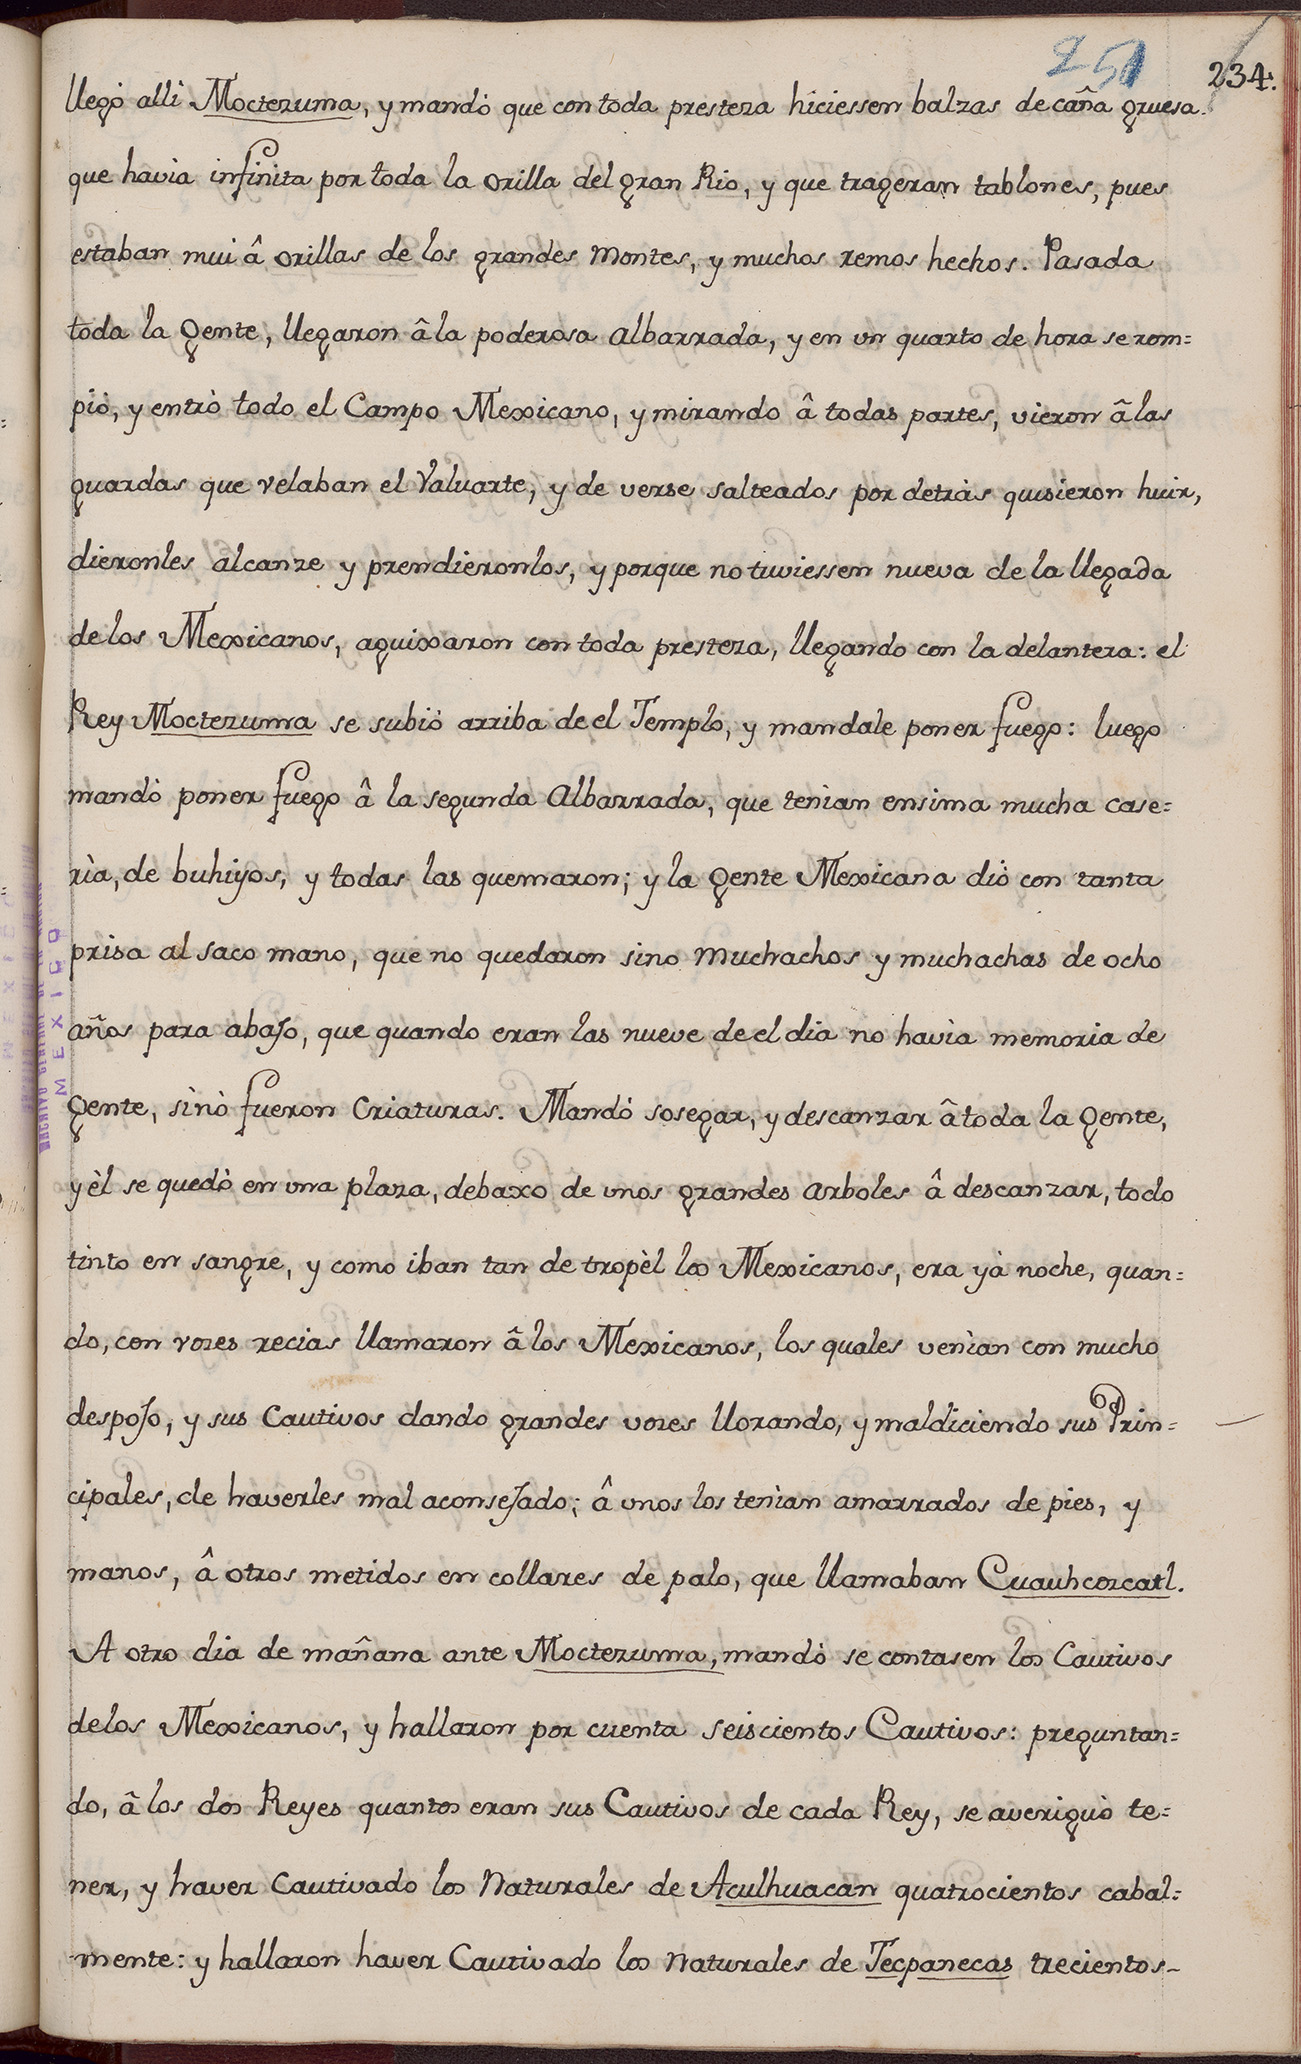 251
234.
llegó alli Moctezuma, y mandò que con toda presteza hiciessen balzas de caña gruesa
que havia infinita por toda la orilla del gran Rio, y que trageran tablones, pues
estaban mui â orillas de los grandes montes, y muchos remos hechos. Pasada
toda la gente, llegaron â la poderosa albarrada, y en vn quarto de hora se rom=
piò, y entrò todo el Campo Mexicano, y mirando â todas partes, vieron â las
guardas que velaban el Valuarte, y de verse salteados por detràs quisieron huir,
dieronles alcanze y prendieronlos, y porque no tuviessen nueva de la llegada
de los Mexicanos, aguixaron con toda presteza, llegando con la delantera: el
Rey Moctezuma se subiò arriba de el Templo, y mandale poner fuego: luego
mandò poner fuego â la segunda Albarrada, que tenìan ensima mucha case=
rìa, de buhiyos, y todas las quemaron; y la gente Mexicana diò con tanta
prisa al saco mano, que no quedaron sino muchachos y muchachas de ocho
años para abajo, que quando eran las nueve de el dia no havìa memoria de
gente, sìnò fueron criaturas. Mandò sosegar, y descanzar â toda la gente,
y èl se quedò en vna plaza, debaxo de vnos grandes arboles â descanzar, todo
tinto en sangre, y como iban tan de tropèl los Mexicanos, era yà noche, quan=
do, con vozes recias llamaron â los Mexicanos, los quales venìan con mucho
despojo, y sus Cautivos dando grandes vozes llorando, y maldiciendo sus Prin=
cipales, de haverles mal aconsejado; â vnos los tenìan amarrados de pies, y
manos, â otros metidos en collares de palo, que llamaban Cuauhcozcatl.
A otro dia de mañana ante Moctezuma, mandò se contasen los Cautivos
de los Mexicanos, y hallaron por cuenta seiscientos Cautivos: preguntan=
do, â los dos Reyes quantos eran sus Cautivos de cada Rey, se averiguò te=
ner, y haver Cautivado los Naturales de Aculhuacan quatrocientos cabal=
mente: y hallaron haver Cautivado los Naturales de Tecpanecas trecientos-
MEXICO